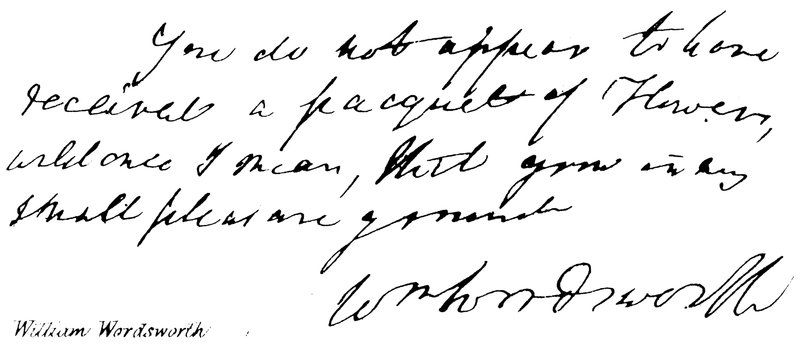 You do not appear to have
received a pacquet of Flowers,
wild ones I mean, that grow in my
small pleasure ground
Wm Wordsworth
William Wordsworth